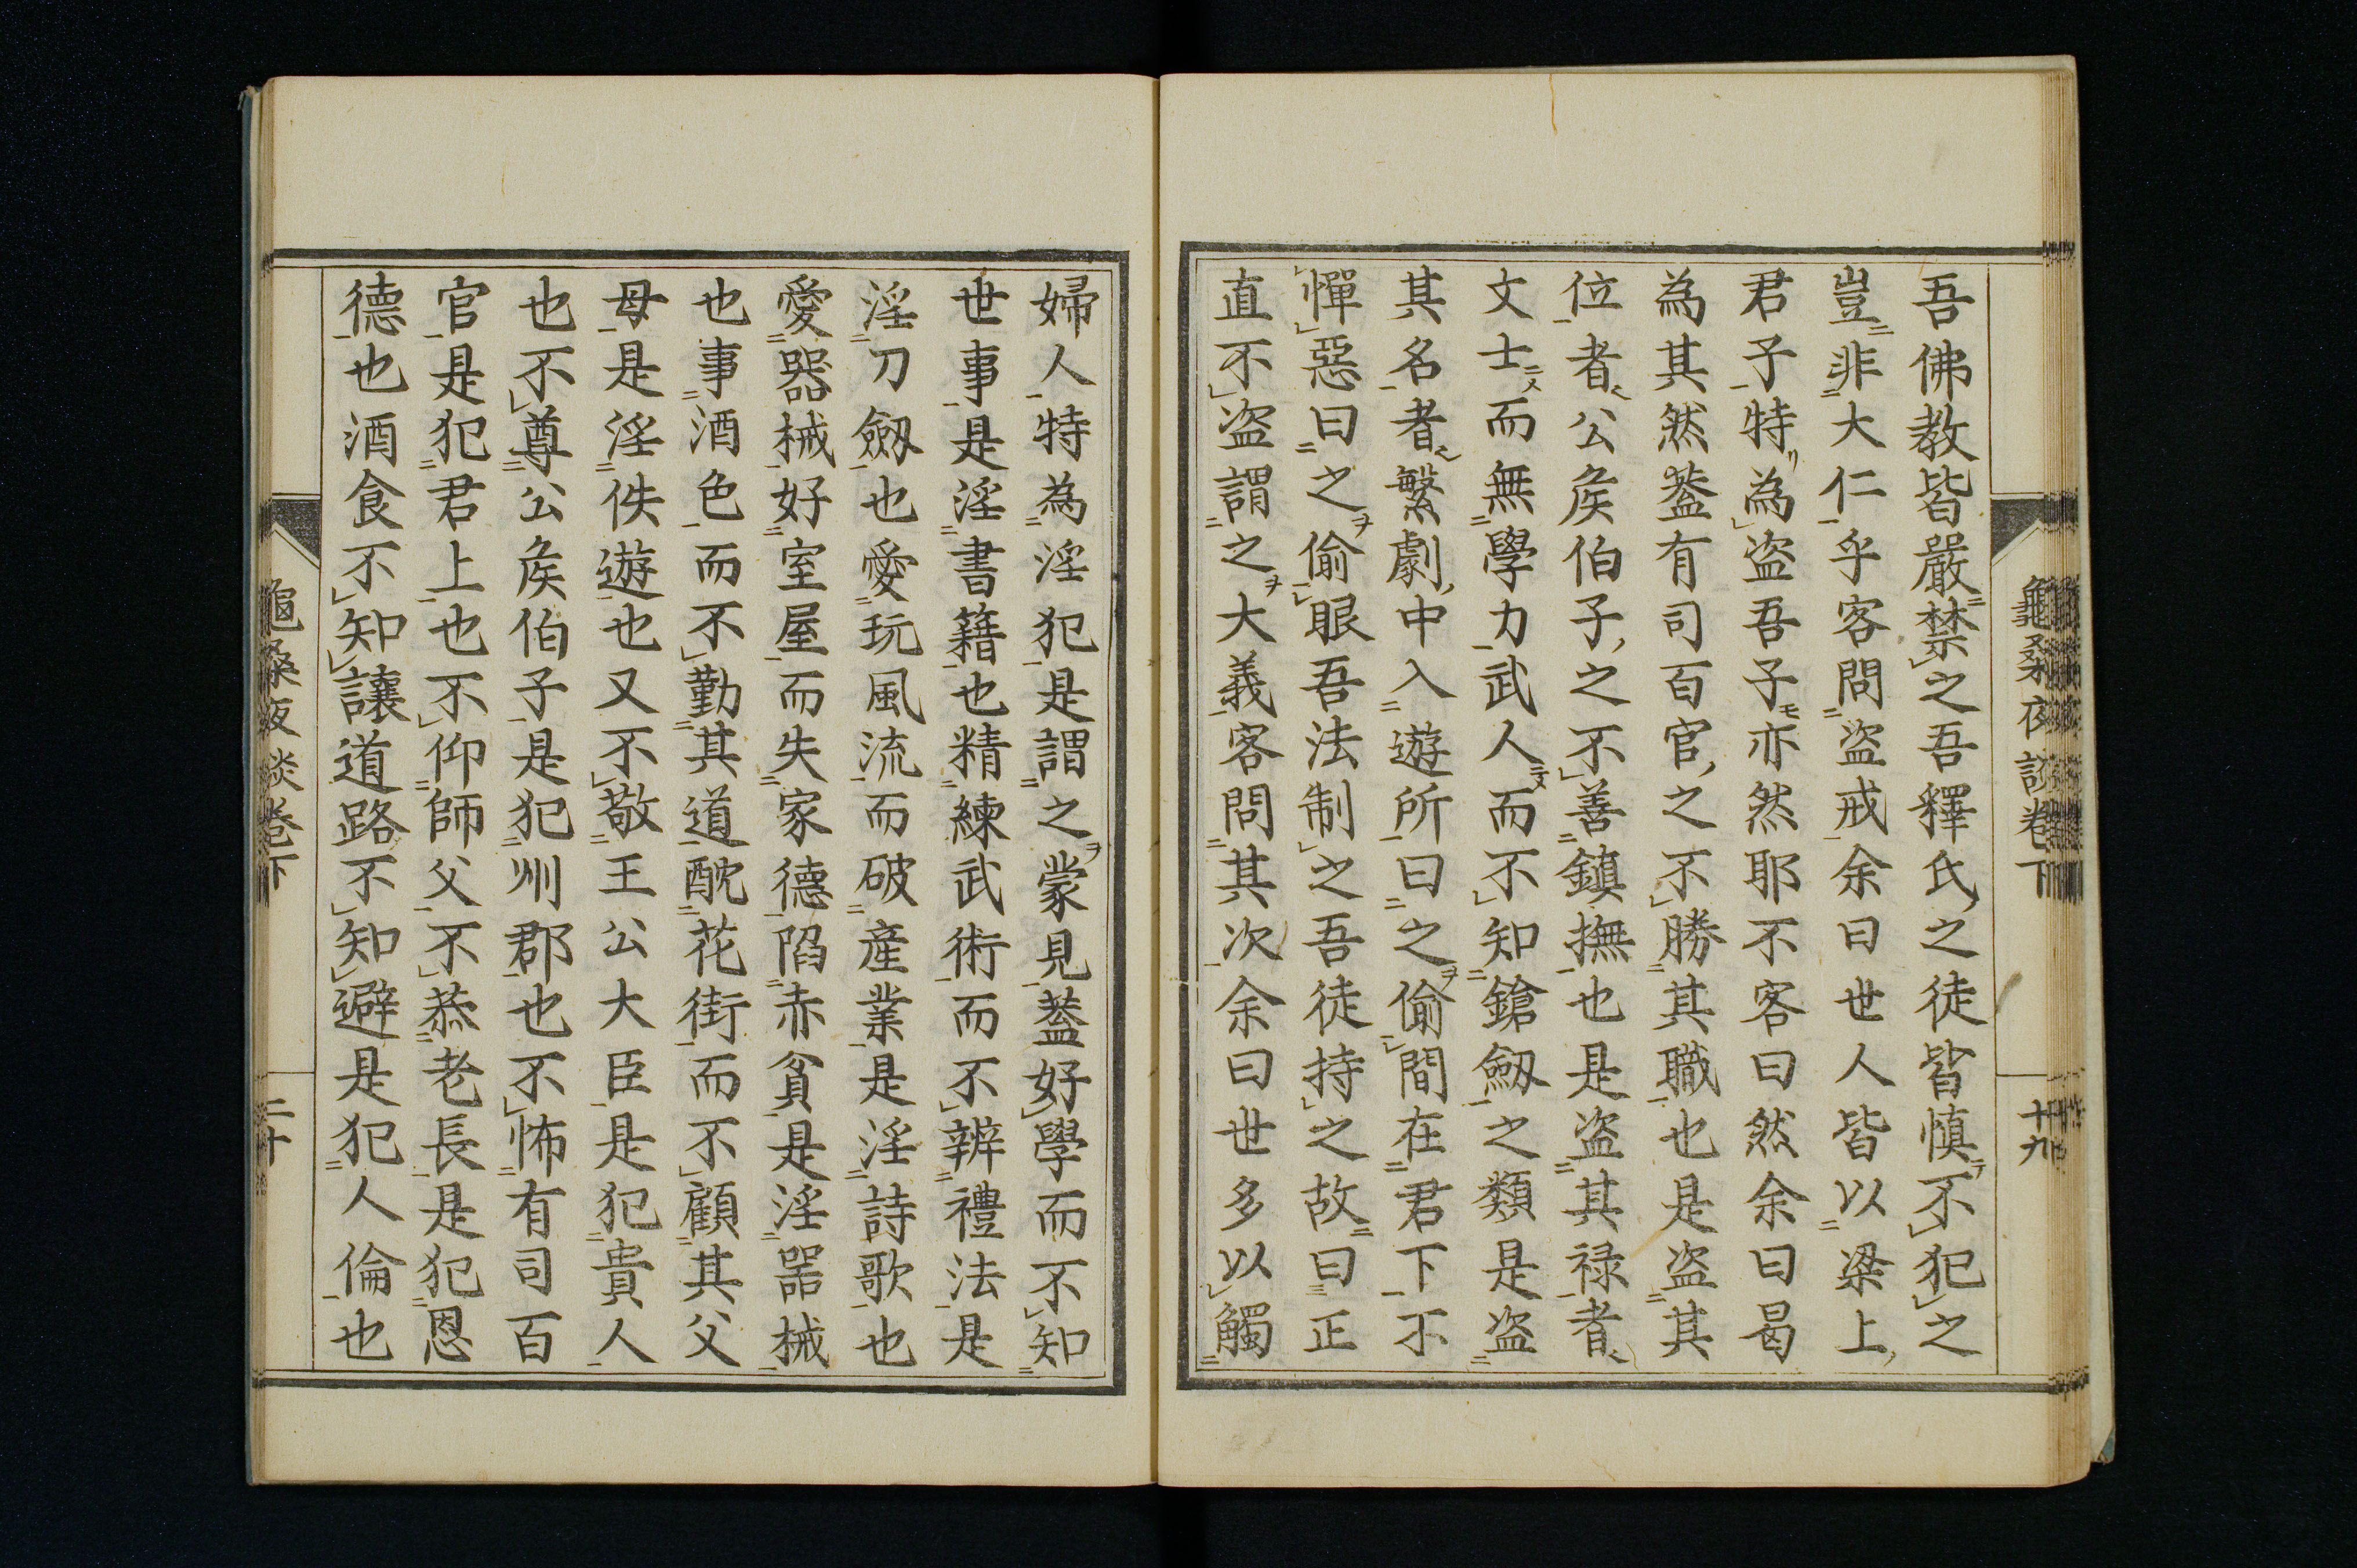 龜桑夜談卷下
十九
吾佛教皆嚴禁之吾釋氏之徒皆慎不犯之
豈非大仁乎客問盜戒余曰世人皆以梁上
君子特為盜吾子亦然耶不客曰然余曰曷
為其然蓋有司百官之不勝其職也是盜其
位者公侯伯子之不善鎮撫也是盜其禄者
文士而無學力武人而不知鎗劔之類是盜
其名者繫劇中入遊所曰之偷間在君下不
憚惡曰之偷眼吾法制之吾徒持之故曰正
直不盜謂之大義客問其次余曰世多以觸
婦人特為淫犯是謂之蒙見蓋好學而不知
世事是淫書籍也精練武術而不辨禮法是
淫刀劔也愛玩風流而破產業是淫詩歌也
愛器械好室屋而失家德陷赤貧是淫器械
也事酒色而不勤其道酖花街而不顧其父
母是淫佚遊也又不敬王公大臣是犯貴人
也不尊公侯伯子是犯州郡也不怖有司百
官是犯君上也不仰師父不恭老長是犯恩
德也酒食不知讓道路不知避是犯人倫也
龜桑夜談卷下
二十